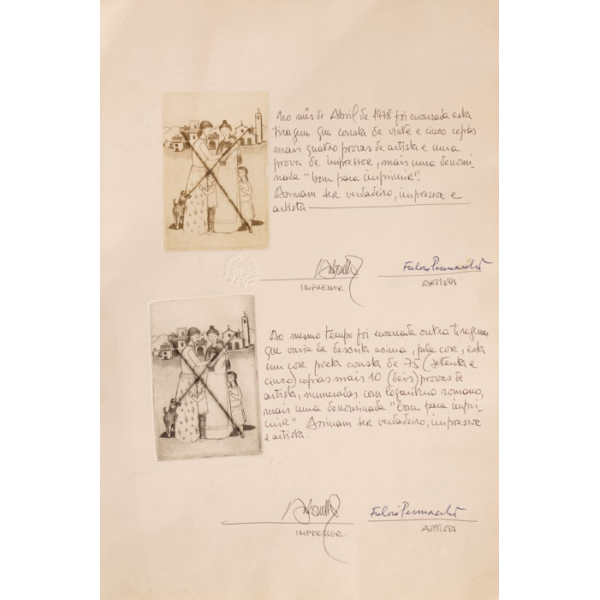 No mês de Abril de 1978 foi encerrada esta
tiragem que consta de vinte e cinco copias
mais quatro provas de artista e uma
prova de impressor, mais uma denomi-
nada "bom para imprimir".
Assinam ser verdadeiro, impressor e
artista
IMPRESSOR
ARTISTA
Ao mesmo tempo foi encerrada outra tiragem
que varia da descrita acima, pela cor, esta
em cor preta consta de 75 (setenta e
cinco) copias mais 10 (deis) provas de
artista, numeradas com logaritmo romano,
mais uma denominada "bom para impri-
mir". Assinam ser verdadeiro, impressor
e artista.
IMPRESSOR
ARTISTA